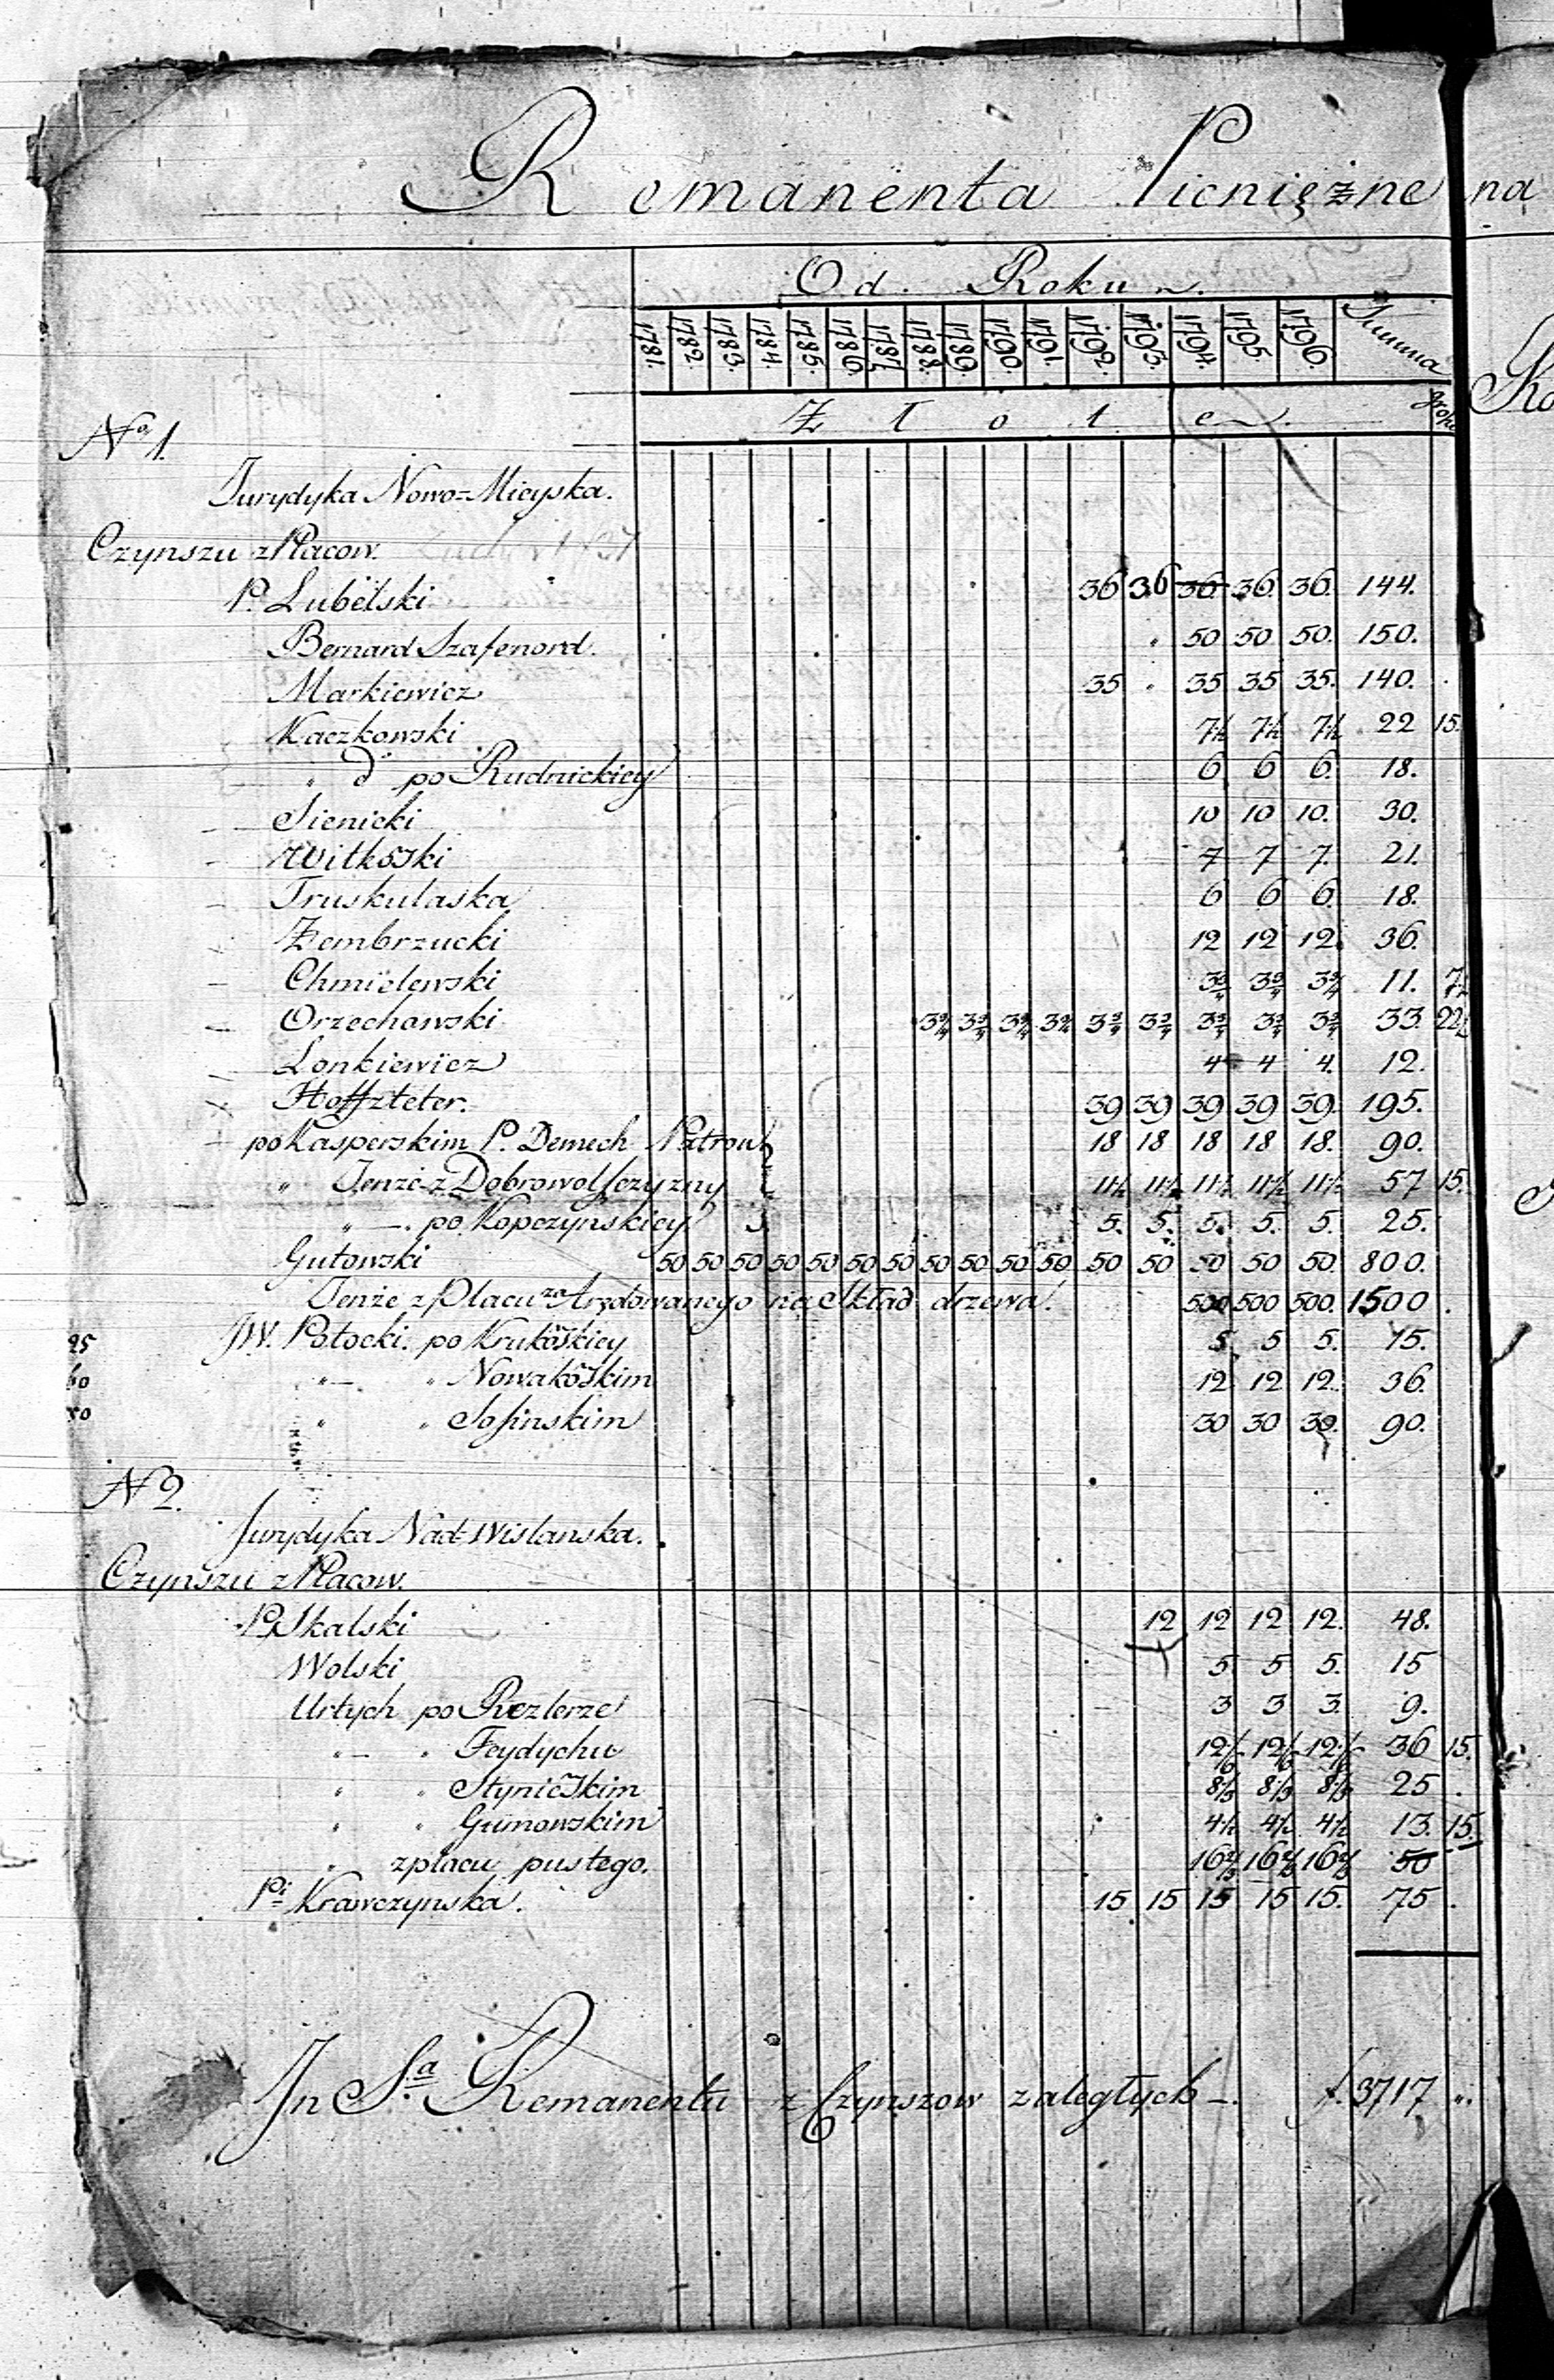 Remanenta Pieniężne na
Od Roku
1781. 1782. 1783. 1784. 1785. 1786. 1787 1788. 1789. 1790. 1791. 1792. 1793. 1794. 1795. 1796. Summa
Złote
No 1.
Jurydyka Nowo=Mieyska.
Czynszu z Placow.
P. Lubelski 36 36 36 36 36. 144.
Bernard Szafenord. 50 50 50. 150.
Markiewicz 35 35 35 35. 140.
Kaczkowski 7½ 7½ 7½ 22 15.
" do po Rudnickiey 6 6 6. 18.
Sienicki 10 10 10. 30.
Witkoski 7 7 7. 21.
Truskulaska 6 6 6. 18.
Zembrzucki 12 12 12. 36.
Chmielewski 3¾ 3¾ 3¾ 11. 7½
Orzechowski 3¾ 3¾ 3¾ 3¾ 3¾ 3¾ 3¾ 3¾ 3¾ 33. 22½
Lonkiewicz 4 4 4. 12.
Hoffzteter. 39 39 39 39 39. 195.
po Kasperskim P. Demech 18 18 18 18 18. 90.
" Tenże z 11½ 11½ 11½ 11½ 11½ 57 15.
" — . po Kopczynskiey 5. 5. 5. 5. 5. 25.
Gutowski 50 50 50 50 50 50 50 50 50 50 50 50 50 50 50 50. 800.
Tenże z Placu zaArędowanego na Skład drzewa. 500 500 500. 1500.
JW. Potocki. po Krukoskiey 5 5 5. 15.
" — " Nowakoskim 12 12 12. 36.
" " Sosinskim 30 30 30. 90.
N 2.
Jurydyka Nad-Wislanska.
Czynszu z Placow.
P. Skalski 12 12 12 12. 48.
Wolski 5 5 5. 15
Urtych po Rezlerze 3 3 3. 9.
" — " Feydychu 12⅙ 12⅙ 12⅙ 36 15.
" " Stynieskim 8⅓ 8⅓ 8⅓ 25.
" " Gumowskim 4½ 4½ 4½ 13. 15.
" z placu pustego. 16⅔ 16⅔ 16⅔ 50
Pi Krawczynska. 15 15 15 15 15. 75.
Jn Sa Remanentu z Czynszow zaległych —. f. 3717 ".